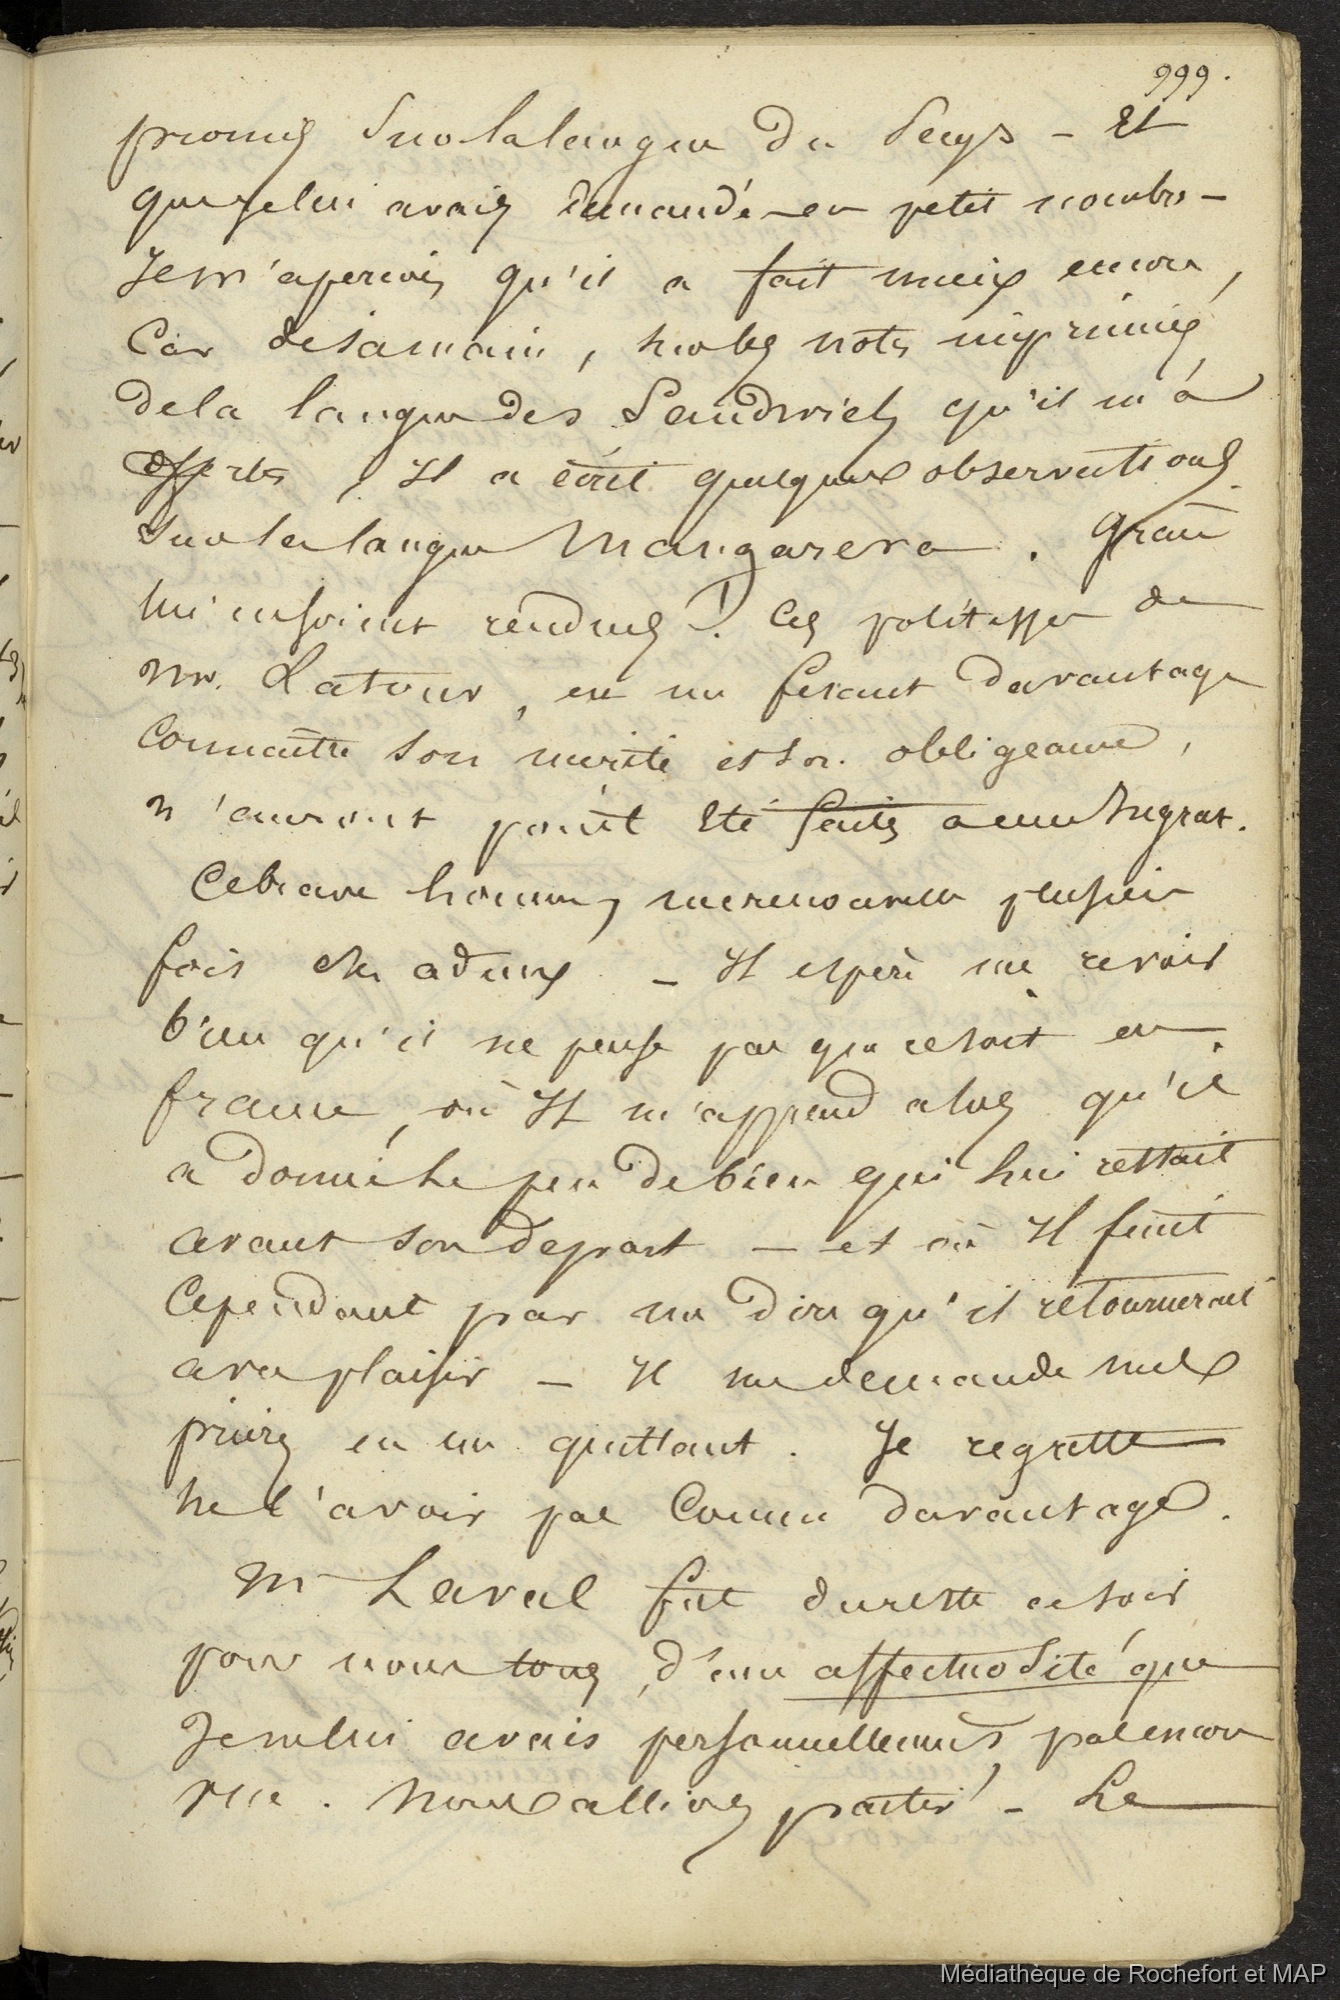 999.
promis sur la langue du pays - Et
que je lui avais demandé en petit nombre -
Je m'aperçois qu'il a fait mieux encore,
Car de sa main, sur les notes imprimées
de la langue des Sandwich qu'il m'a
offertes, Il a écrit quelques observations
sur la langue Mangareva. Grâces
lui en soient rendues ! Ces politesses de
Mr. Latour, en me fesant davantage
Connaître son mérite et son obligeance,
n'auront point Eté faites a un Ingrat.
Ce brave homme, me renouvelle plusieurs
fois ses adieux - Il espère me revoir
bien qu'il ne pense pas que ce soit en
france, où Il m'apprend alors qu'il
a donné le peu de bien qui lui restait
avant son depart - et où Il finit
Cependant par me dire qu'il retournerait
avec plaisir - Il me demande mes
prières en me quittant. Je regrette
ne l'avoir pas Connu davantage.
Mr Laval fut du reste ce soir
pour nous tous, d'une affectuosité que
Je ne lui avais personnellement, pas encore
vue. Nous allions partir - Le
Médiathèque de Rochefort et MAP